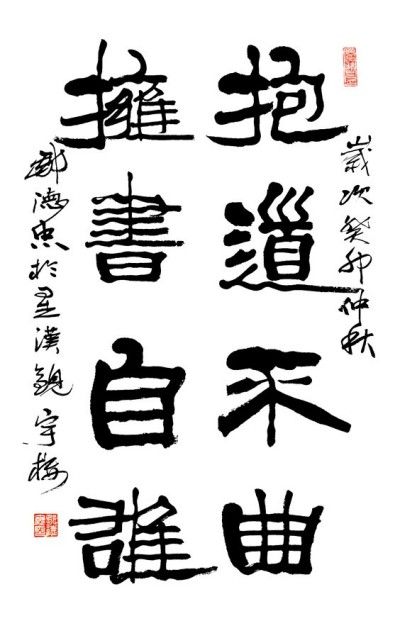 歲次癸卯仲秋
抱道不曲
擁書自雄
鄭德忠於星漢觀宇樓